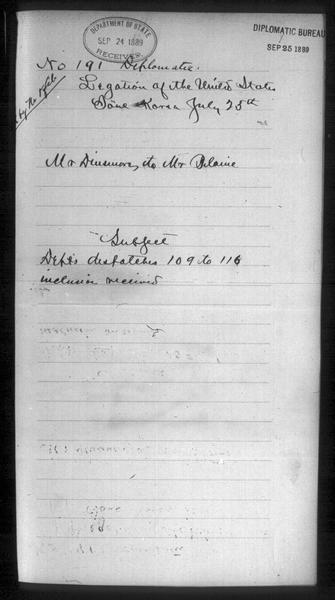 DEPARTMENT OF STATE
SEP 24 1889
RECEIVED
DIPLOMATIC BUREAU
SEP 25 1889
No 191 Diplomatic.
Legation of the United States
Söul Korea July 25th
Mr Dinsmore, to Mr Blaine
Subject
Dept's despatches 109 to 116
inclusive received